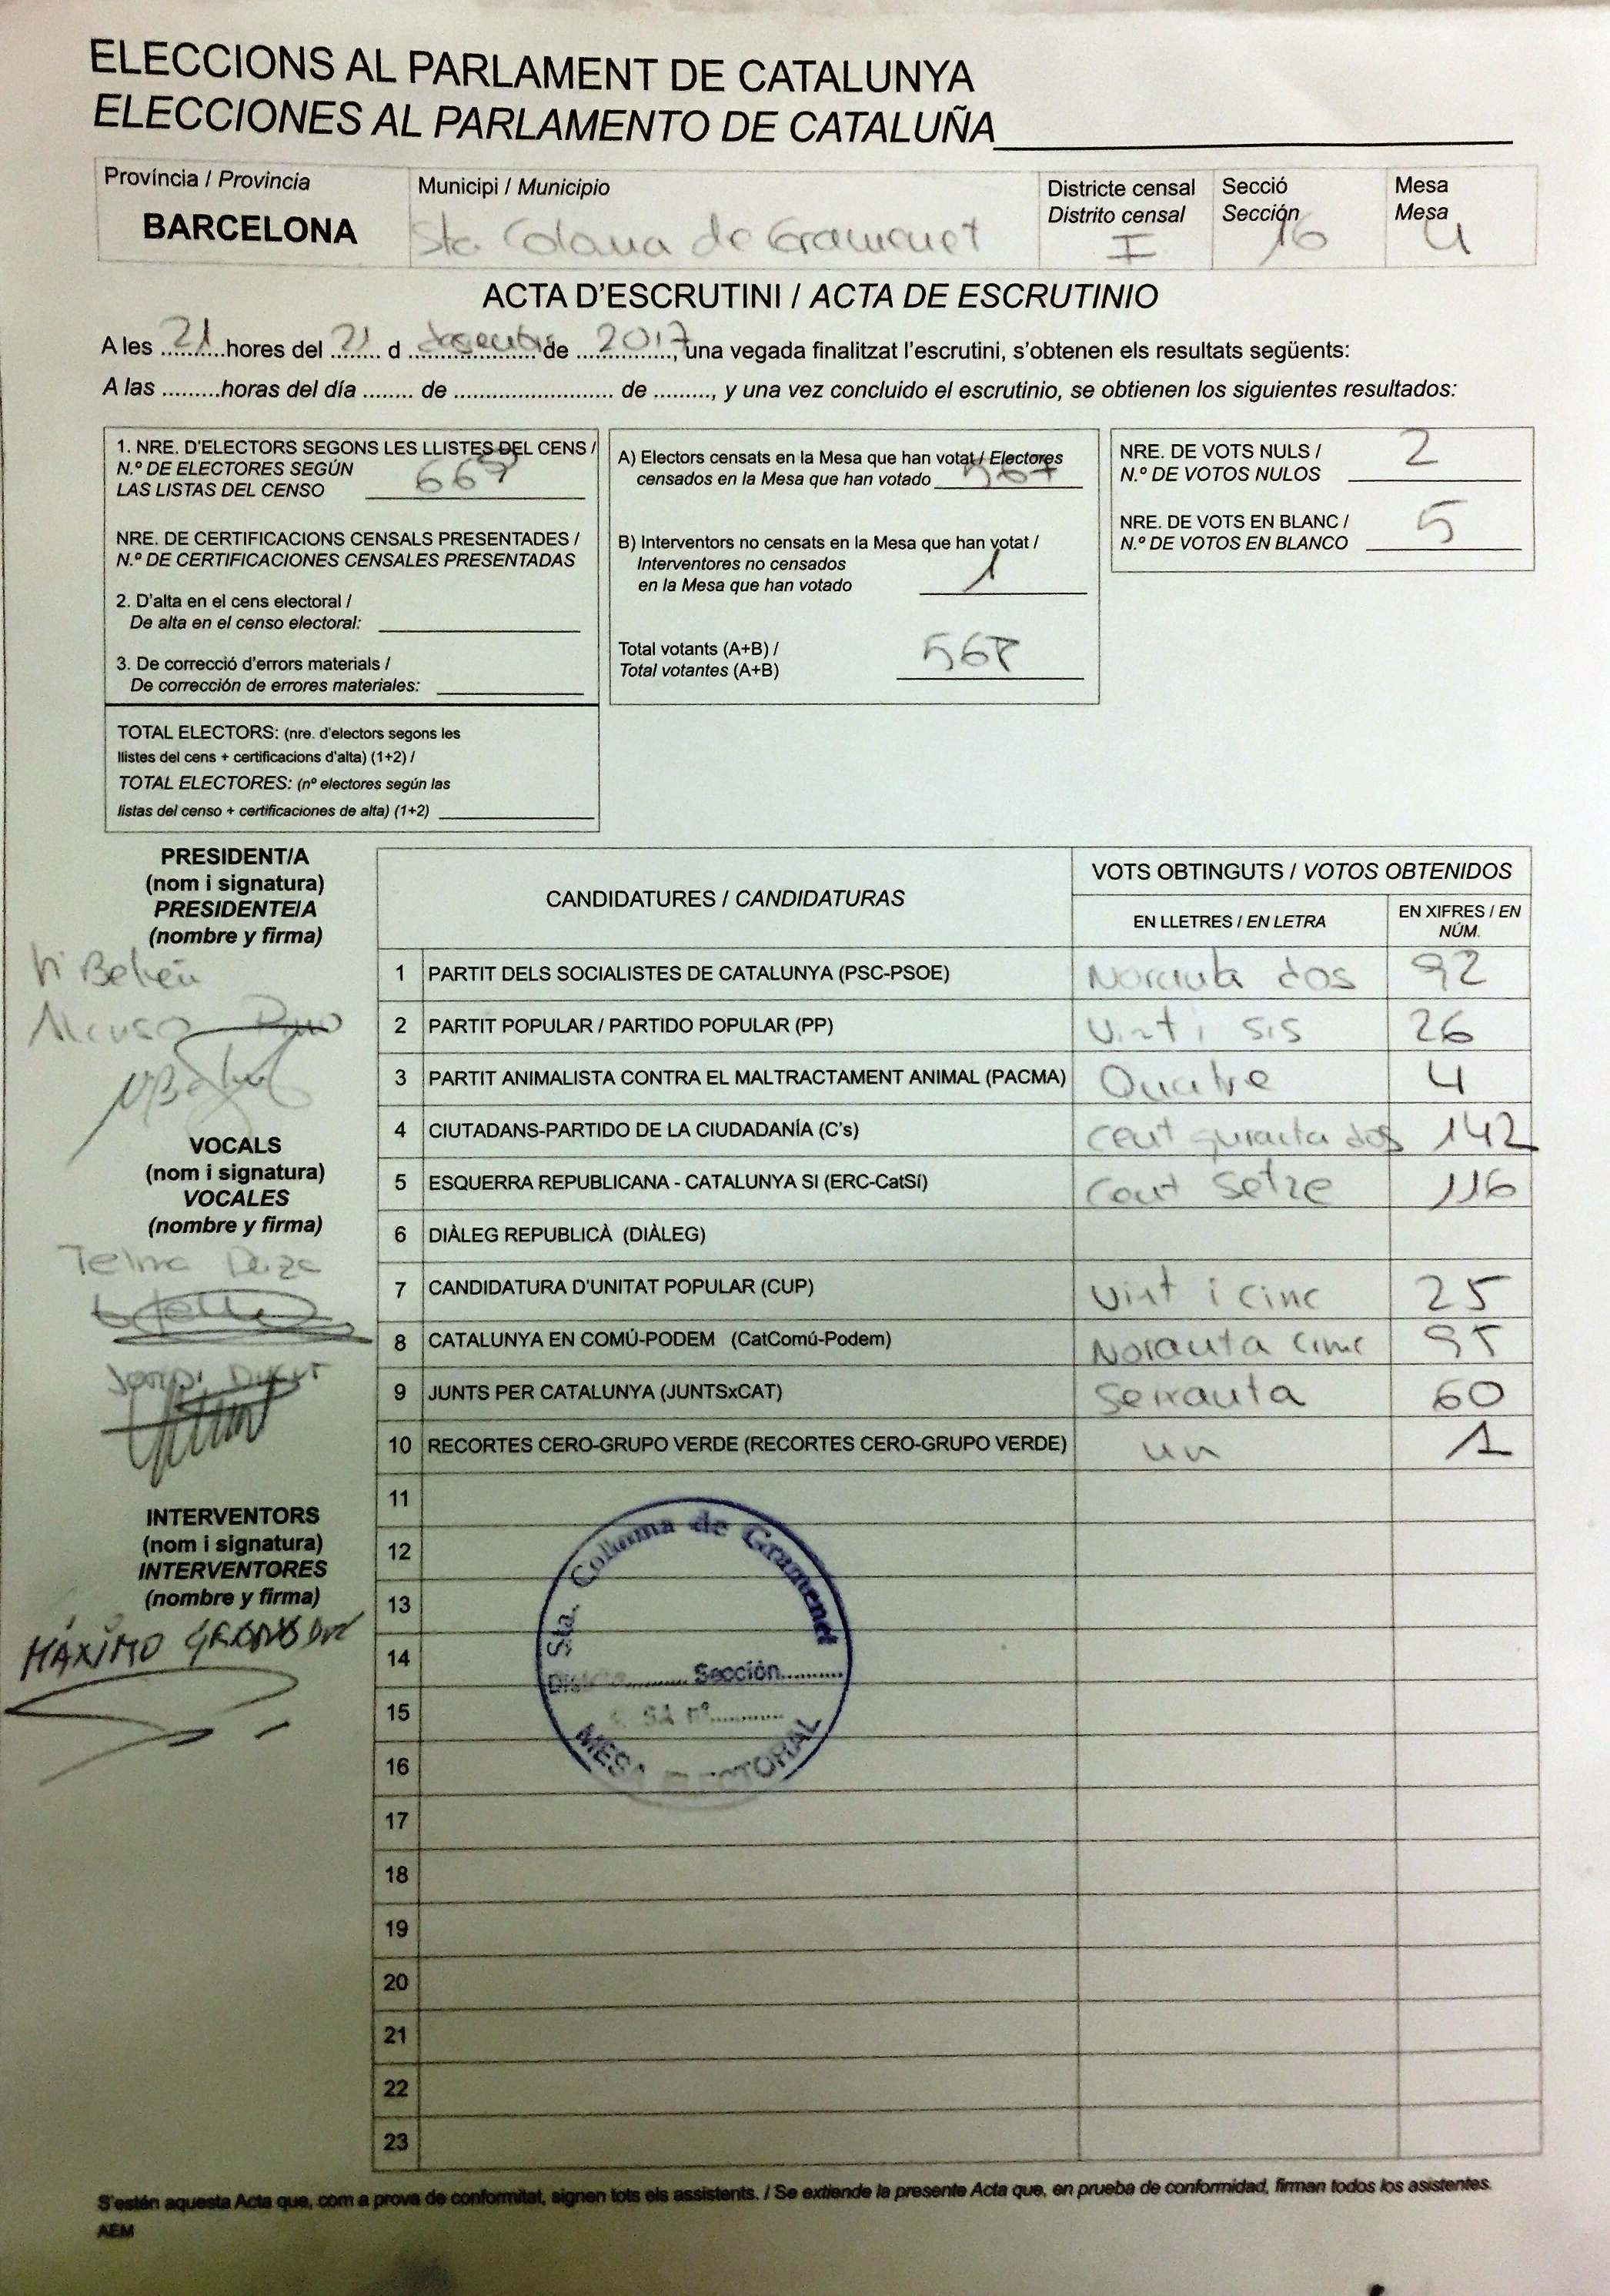 ELECCIONS AL PARLAMENT DE CATALUNYA
ELECCIONES AL PARLAMENTO DE CATALUÑA
Província / Provincia
BARCELONA
Municipi / Municipio
Sta. Coloma de Gramenet
Districte censal
Distrito censal
I
Secció
Sección
16
Mesa
Mesa
U
ACTA D'ESCRUTINI / ACTA DE ESCRUTINIO
A les 21 hores del 21 d desembre de 2017, una vegada finalitzat l'escrutini, s'obtenen els resultats següents:
A las .........horas del día ........ de ......................... de ........., y una vez concluido el escrutinio, se obtienen los siguientes resultados:
1. NRE. D'ELECTORS SEGONS LES LLISTES DEL CENS /
N.º DE ELECTORES SEGÚN
LAS LISTAS DEL CENSO
NRE. DE CERTIFICACIONS CENSALS PRESENTADES /
N.º DE CERTIFICACIONES CENSALES PRESENTADAS
2. D'alta en el cens electoral /
De alta en el censo electoral:
3. De correcció d'errors materials /
De corrección de errores materiales:
TOTAL ELECTORS: (nre. d'electors segons les
llistes del cens + certificacions d'alta) (1+2) /
TOTAL ELECTORES: (nº electores según las
listas del censo + certificaciones de alta) (1+2)
A) Electors censats en la Mesa que han votat / Electores
censados en la Mesa que han votado 567
B) Interventors no censats en la Mesa que han votat /
Interventores no censados
en la Mesa que han votado 1
Total votants (A+B) /
Total votantes (A+B) 568
NRE. DE VOTS NULS /
N.º DE VOTOS NULOS 2
NRE. DE VOTS EN BLANC /
N.º DE VOTOS EN BLANCO 5
PRESIDENT/A
(nom i signatura)
PRESIDENTE/A
(nombre y firma)
Mª Belén
VOCALS
(nom i signatura)
VOCALES
(nombre y firma)
Telma
INTERVENTORS
(nom i signatura)
INTERVENTORES
(nombre y firma)
MÁXIMO
CANDIDATURES / CANDIDATURAS
VOTS OBTINGUTS / VOTOS OBTENIDOS
EN LLETRES / EN LETRA
EN XIFRES / EN
NÚM.
1 PARTIT DELS SOCIALISTES DE CATALUNYA (PSC-PSOE) Noranta dos 92
2 PARTIT POPULAR / PARTIDO POPULAR (PP) Vint i sis 26
3 PARTIT ANIMALISTA CONTRA EL MALTRACTAMENT ANIMAL (PACMA) Quatre 4
4 CIUTADANS-PARTIDO DE LA CIUDADANÍA (C's) cent quranta dos 142
5 ESQUERRA REPUBLICANA - CATALUNYA SI (ERC-CatSí) cent setze 116
6 DIÀLEG REPUBLICÀ (DIÀLEG)
7 CANDIDATURA D'UNITAT POPULAR (CUP) vint i cinc 25
8 CATALUNYA EN COMÚ-PODEM (CatComú-Podem) Noranta cinc 95
9 JUNTS PER CATALUNYA (JUNTSxCAT) Seixanta 60
10 RECORTES CERO-GRUPO VERDE (RECORTES CERO-GRUPO VERDE) un 1
11
12
13
14
15
16
17
18
19
20
21
22
23
Sta. Coloma de Gramenet
Distrito......... Sección.........
MESA nº.........
MESA ELECTORAL
S'estén aquesta Acta que, com a prova de conformitat, signen tots els assistents. / Se extiende la presente Acta que, en prueba de conformidad, firman todos los asistentes.
AEM